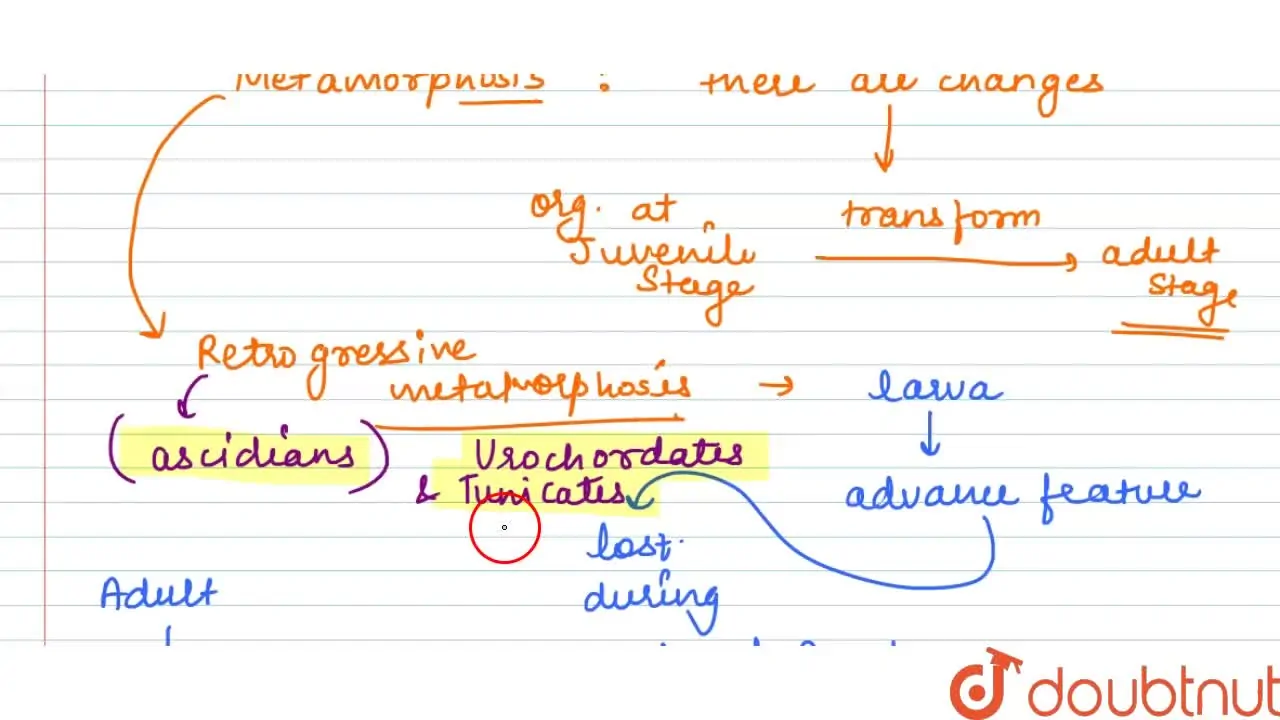 Metamorphosis : there are changes
org. at transform
Juvenile adult
Stage stage
Retrogressive
metamorphosis → larva
(ascidians) Urochordates
& Tunicates advance feature
lost
during
Adult
doubtnut